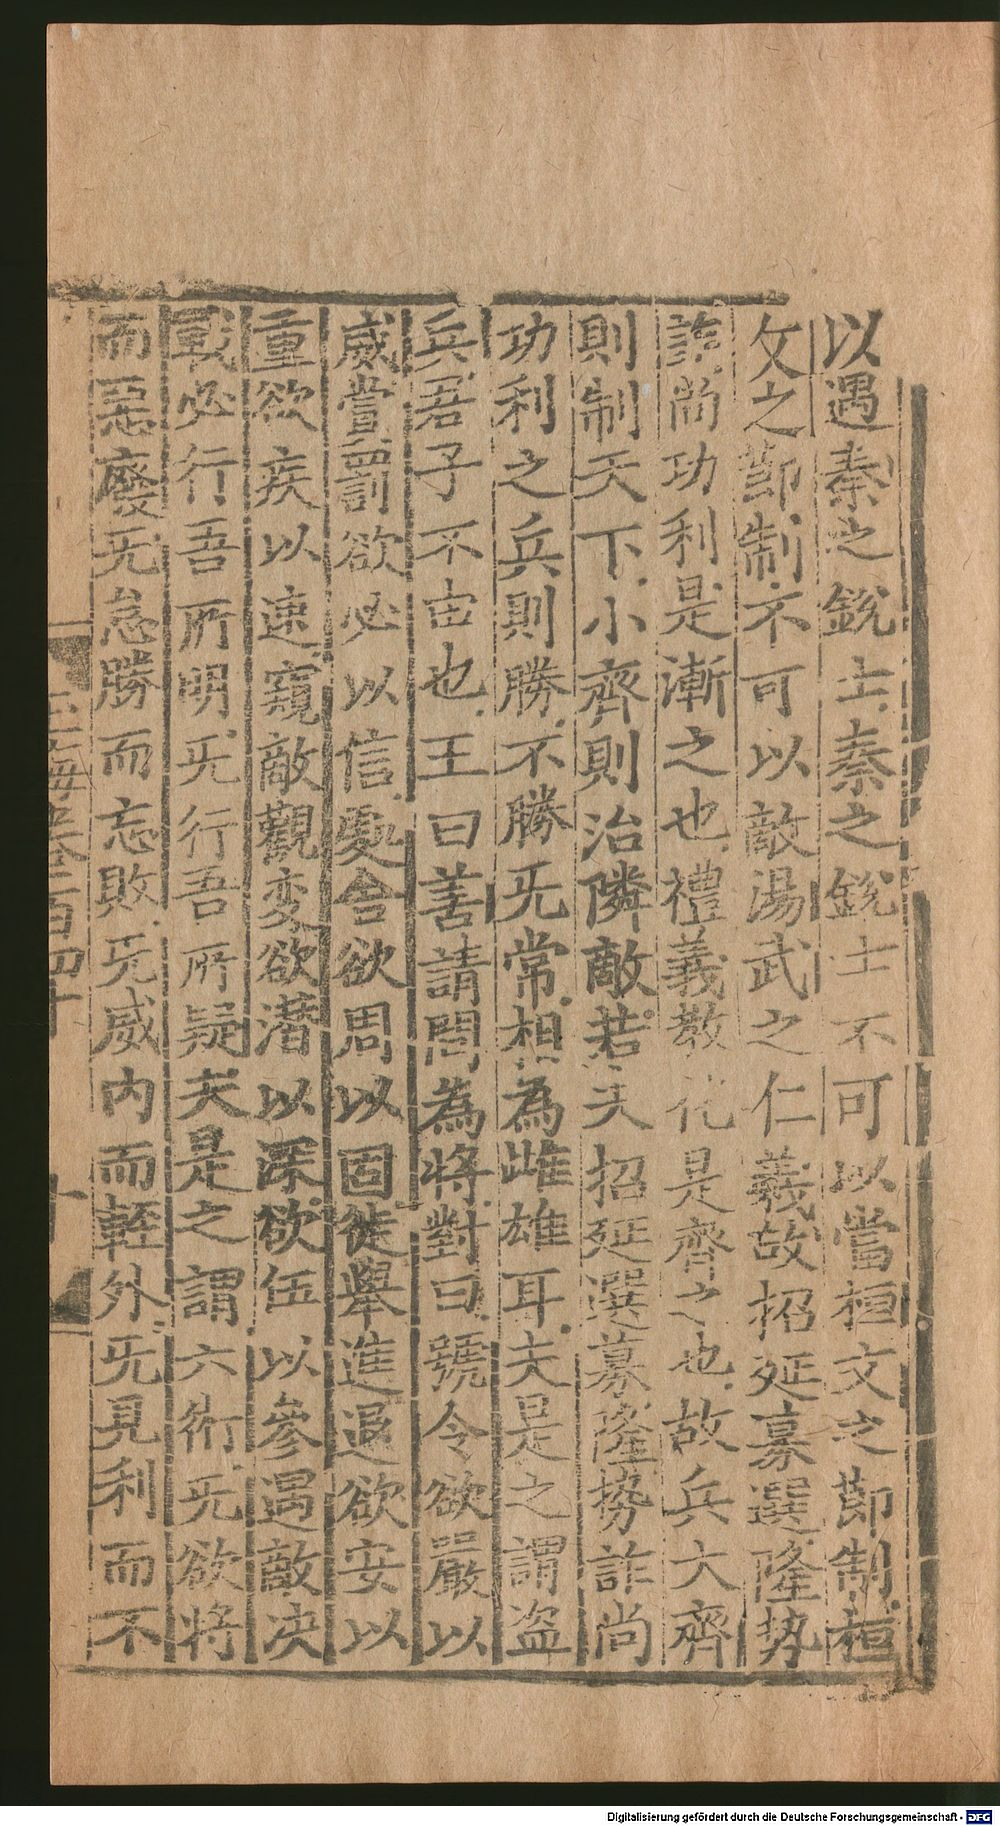 以遇秦之銳士秦之銳士不可以當桓文之節制桓
文之節制不可以敵湯武之仁義故招延募選隆势
詐尚功利是漸之也禮義教化是齊之也故兵大齊
則制天下小齊則治隣敵若夫招延選募隆势詐尚
功利之兵則勝不勝旡常相為雌雄耳夫是之謂盗
兵君子不由也王曰善請問為將對曰號令欲嚴以
威賞罰欲必以信處舍欲周以固徙舉進退欲安以
重欲疾以速窺敵觀变欲潜以深欲伍以參遇敵决
戰必行吾所明旡行吾所疑夫是之謂六術旡欲將
而惡廢旡怠勝而忘敗旡威内而輕外旡見利而不
玉海卷二百四十
十
Digitalisierung gefördert durch die Deutsche Forschungsgemeinschaft - DFG